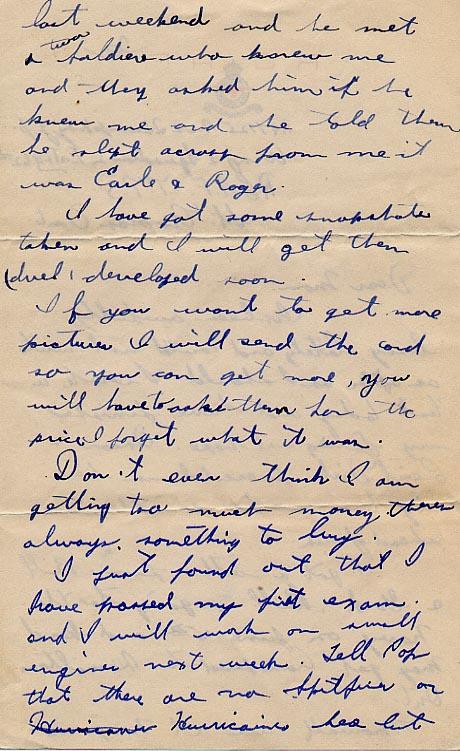 last weekend and he met
a two soldiers who knew me
and they asked him if he
knew me and he told them
he slept across from me it
was Earle & Roger.
I have got some snapshots
taken and I will get them
(dvel) developed soon.
If you want to get more
pictures I will send the card
so you can get more, you
will have to ask them for the
price I forget what it was.
Don't even think I am
getting too much money theres
always something to buy.
I just found out that I
have passed my first exam.
and I will work on small
engines next week. Tell Pop
that there are no Spitfires or
Hurricanes Hurricaines here but